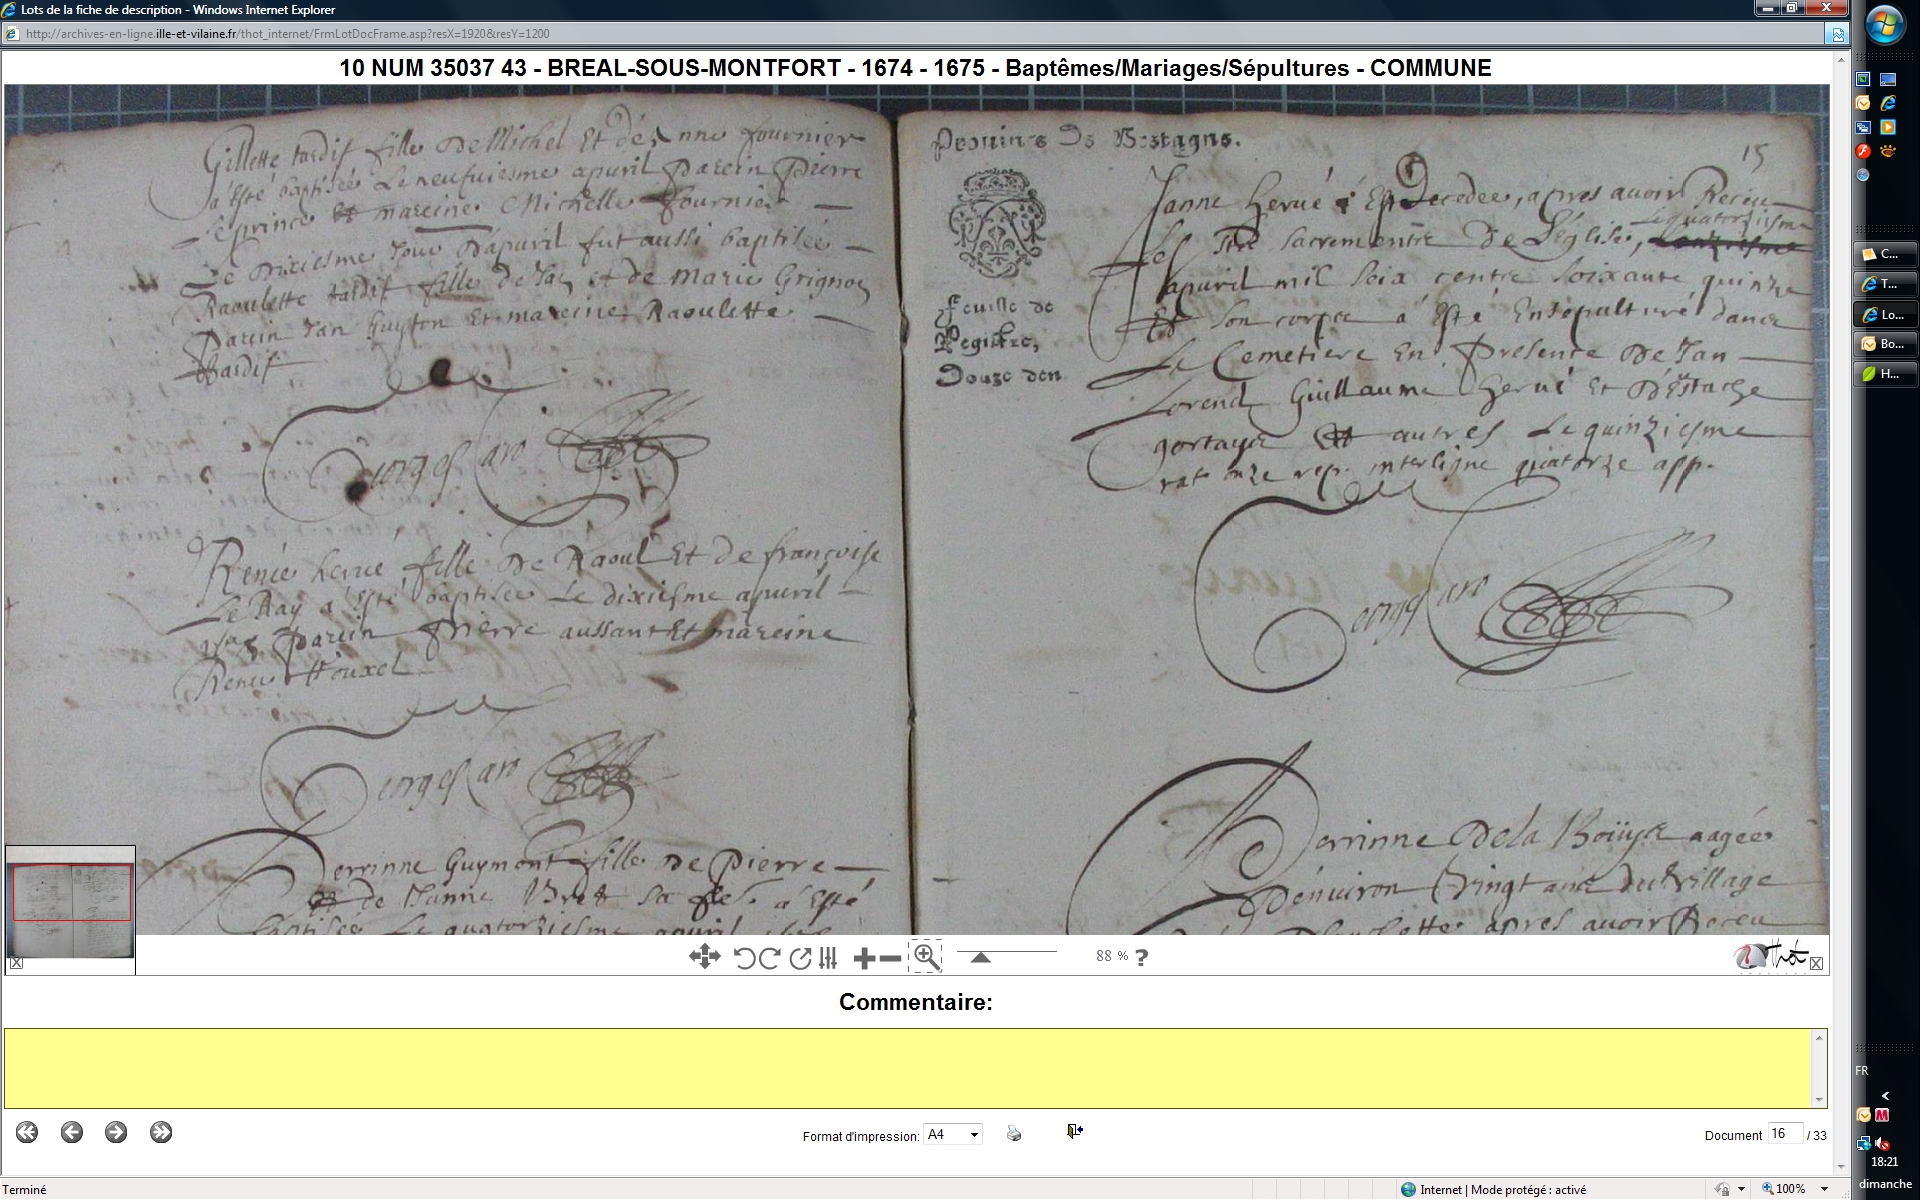 Lots de la fiche de description - Windows Internet Explorer
http://archives-en-ligne.ille-et-vilaine.fr/thot_internet/FrmLotDocFrame.asp?resX=1920&resY=1200
10 NUM 35037 43 - BREAL-SOUS-MONTFORT - 1674 - 1675 - Baptêmes/Mariages/Sépultures - COMMUNE
Gillette tardif fille De Michel Et de Anne fournier
a Esté baptisée Le neufuiesme apuril Parein Pierre
Le prince Et mareine Michelle fournier
Le dixiesme Jour d'apuril fut aussi baptisée
Raoulette tardif fille de Jan et de Marie Grignon
Parein Jan Guyton Et mareine Raoulette
tardif
Georges
Renée hervé fille De Raoul Et de françoise
Le Ray a Esté baptisée Le dixiesme apuril
Parein Pierre aussant Et mareine
Renée Houxel
Georges
Perrinne Guymont fille de Pierre
Et de Janne Bret sa fe. a Esté
baptisée Le quatorziesme apuril
Prouince De Bretagne.
Feuille de
Registre,
Douze den
15
Janne hervé Est Decedee, apres auoir Receu
Le quatorziesme
Les Sacrementz De L'Eglise,
apuril mil Seix centz Soixante quinze
Et Son corps a Esté Ensepulturé dans
Le Cemetiere En Presence De Jan
Lorend Guillaume hervé Et D'Estache
gortays Et autres Le quinziesme
rat onze rep. interligne quatorze app.
Georges
Perrinne De la Boüys aagée
D'enuiron Vingt ans du Village
apres auoir Receu
88 %
?
Thot
Commentaire:
Format d'impression: A4
Document 16 / 33
Terminé
Internet | Mode protégé : activé
100%
C...
T...
Lo...
Bo...
H...
FR
18:21
dimanche